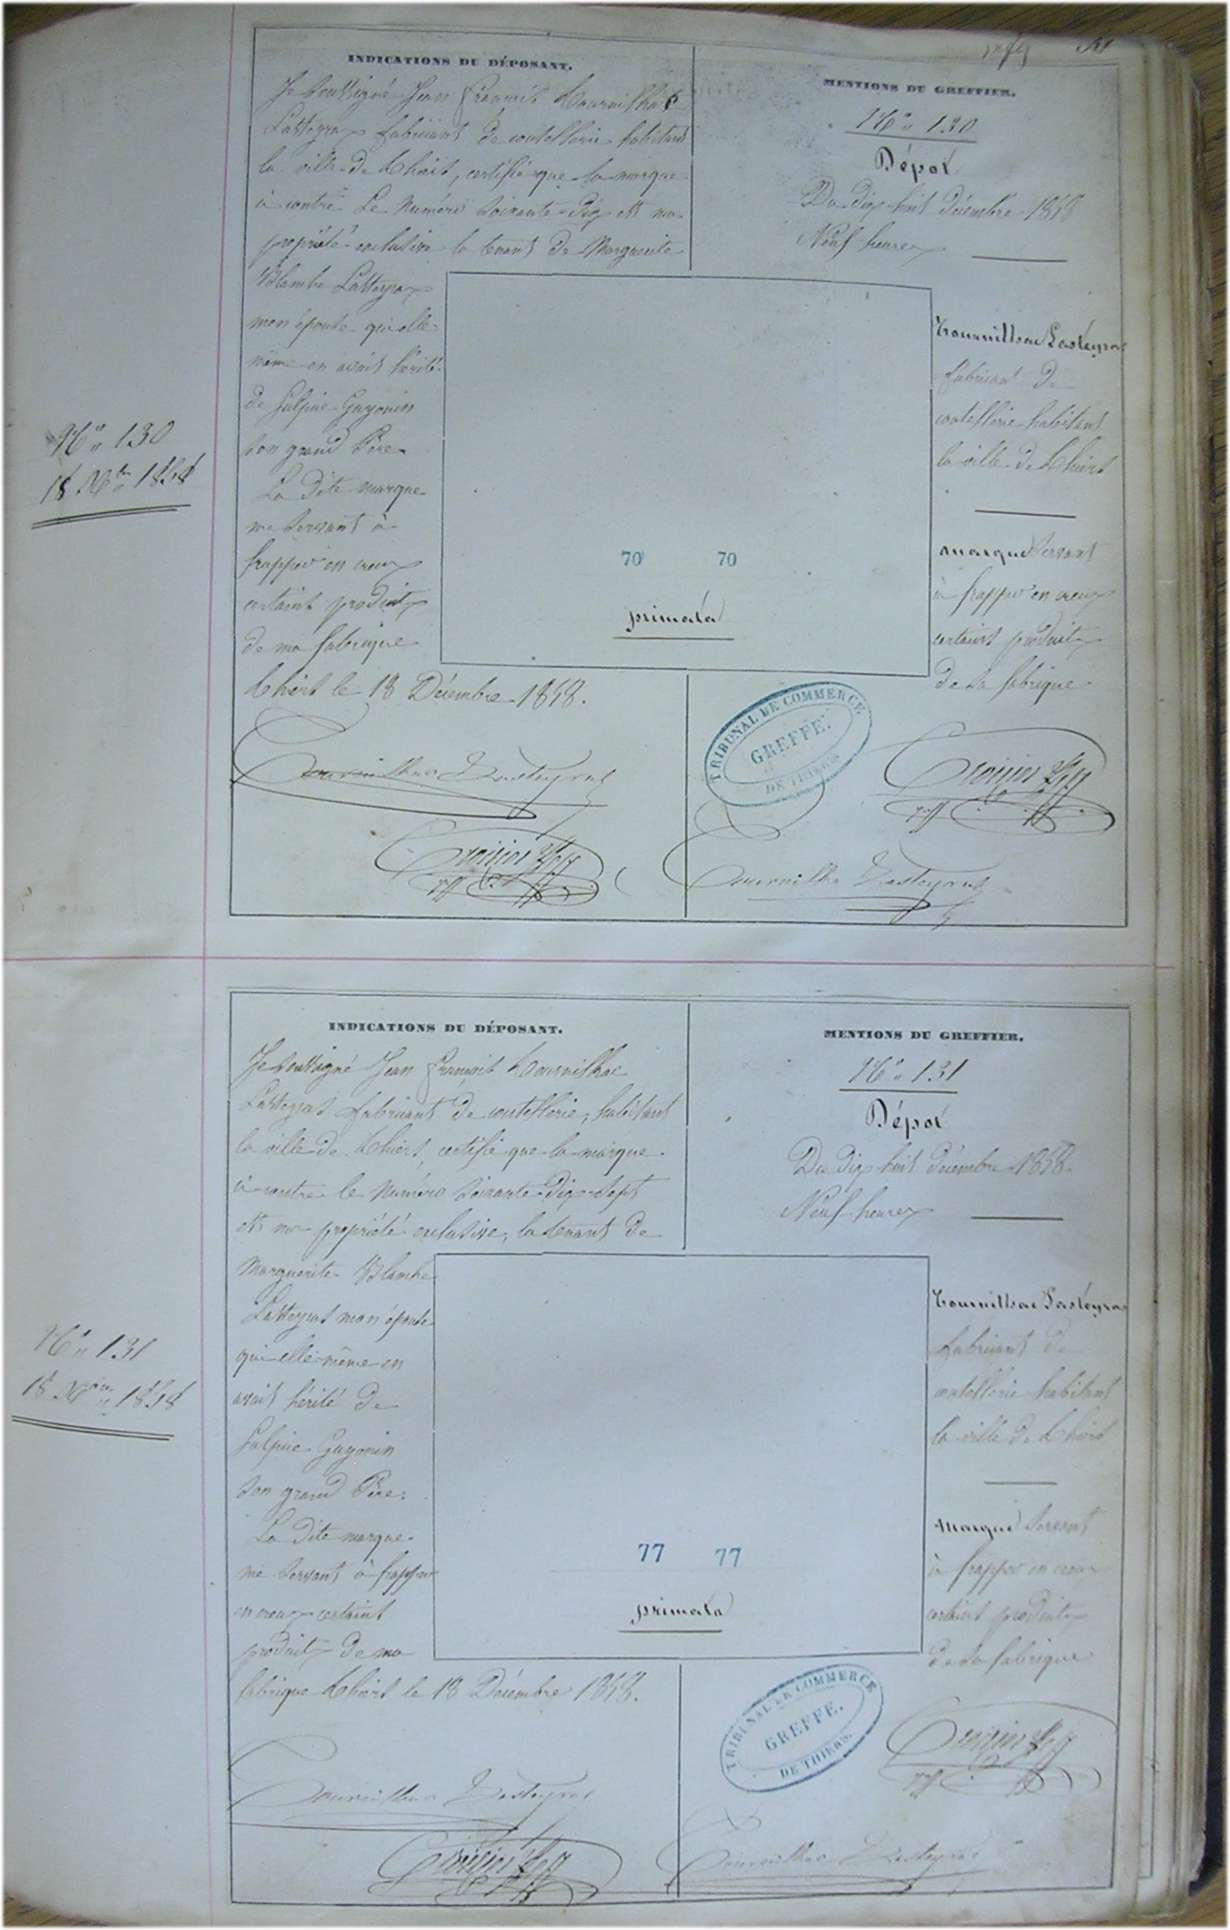 INDICATIONS DU DÉPOSANT.
Je soussigné Jean François Tournilhac
Lasteyras fabricant de coutellerie habitant
la ville de Thiers, certifie que la marque
à contre le Numéro soixante-dix est ma
propriété exclusive la tenant de Marguerite
Blanche Lasteyras
mon épouse qui elle-
même en avait hérité
de Sulpice Guyonin
son grand Père.
La dite marque
me servant à
frapper en creux
certains produits
de ma fabrique
Thiers le 18 Décembre 1858.
Tournilhac Lasteyras
MENTIONS DU GREFFIER.
No 130
Dépot
Du dix huit décembre 1858
Neuf heures
Tournilhac Lasteyras
fabricant de
coutellerie habitant
la ville de Thiers
marque servant
à frapper en creux
certains produits
de sa fabrique
70 70
primata
TRIBUNAL DE COMMERCE
GREFFE.
DE THIERS.
Tournilhac Lasteyras
No 130
18 Xbre 1858
INDICATIONS DU DÉPOSANT.
Je soussigné Jean François Tournilhac
Lasteyras fabricant de coutellerie, habitant
la ville de Thiers, certifie que la marque
à contre le Numéro soixante-dix-sept
est ma propriété exclusive, la tenant de
Marguerite Blanche
Lasteyras mon épouse
qui elle-même en
avait hérité de
Sulpice Guyonin
son grand Père.
La dite marque
me servant à frapper
en creux certains
produits de ma
fabrique Thiers le 18 Décembre 1858.
Tournilhac Lasteyras
MENTIONS DU GREFFIER.
No 131
Dépot
Du dix huit décembre 1858
Neuf heures
Tournilhac Lasteyras
fabricant de
coutellerie habitant
la ville de Thiers
marque servant
à frapper en creux
certains produits
de sa fabrique
77 77
primata
TRIBUNAL DE COMMERCE
GREFFE.
DE THIERS.
Tournilhac Lasteyras
No 131
18 Xbre 1858